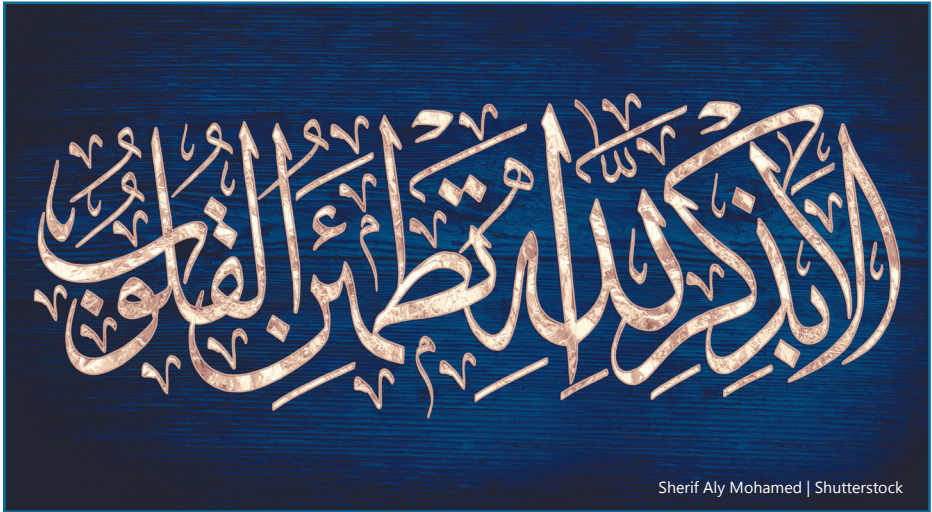 أَلَا بِذِكْرِ اللَّهِ تَطْمَئِنُّ الْقُلُوبُ
Sherif Aly Mohamed | Shutterstock